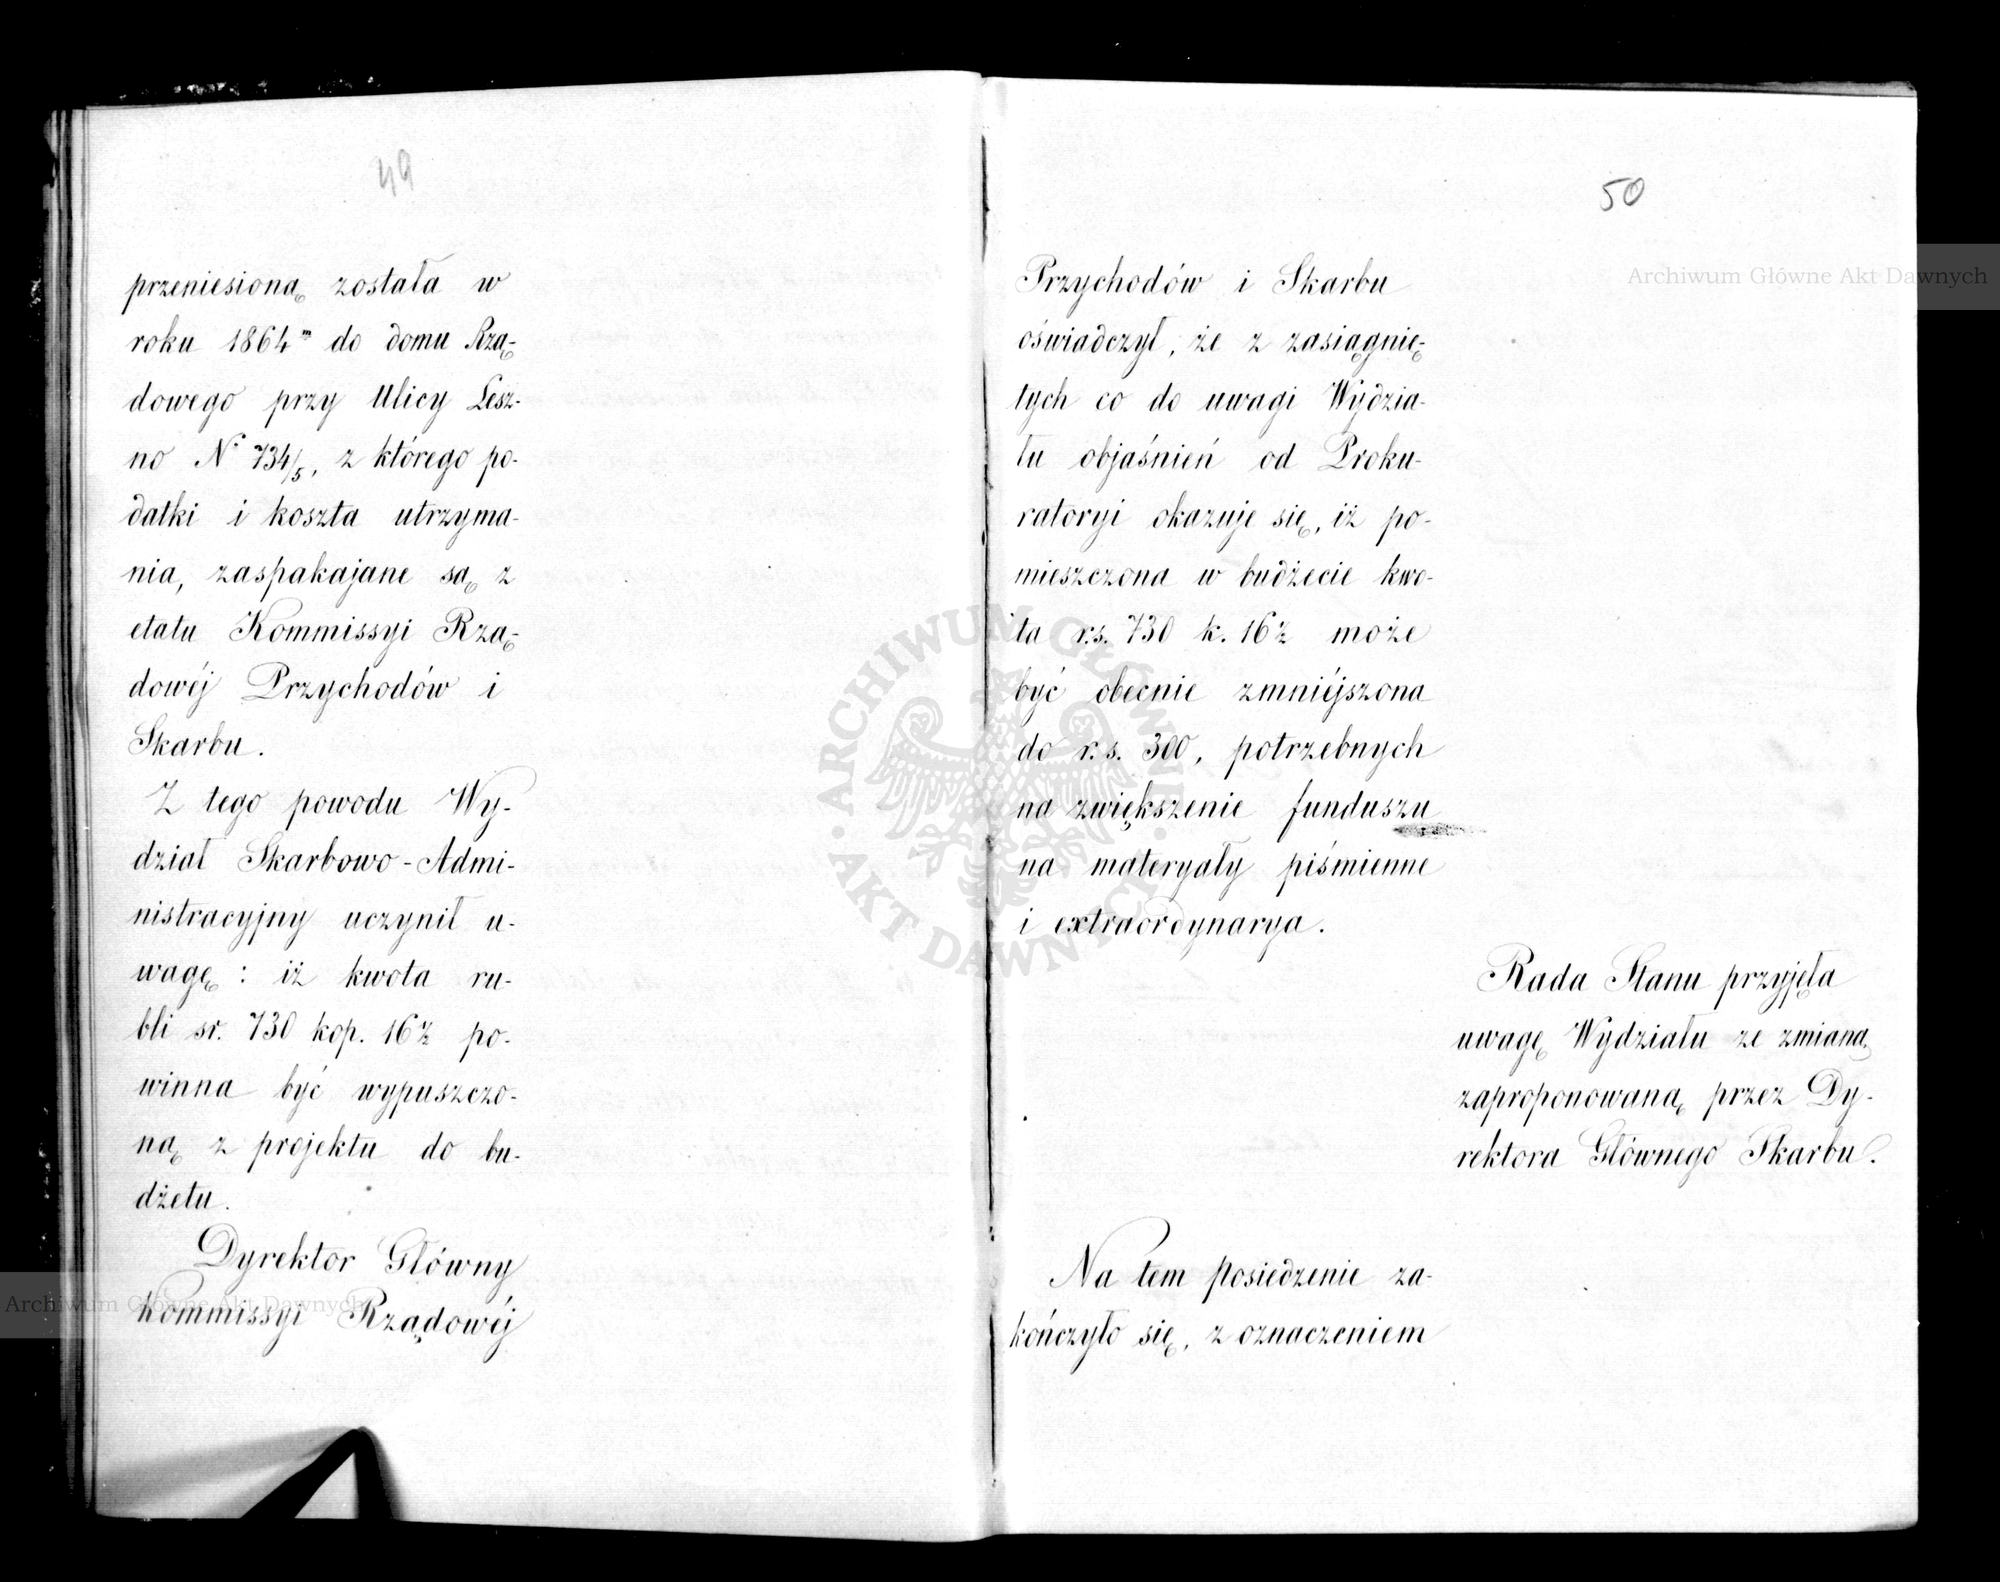 49
przeniesioną została w
roku 1864m do domu Rzą-
dowego przy Ulicy Lesz-
no No 734/5, z którego po-
datki i koszta utrzyma-
nia, zaspakajane są z
etatu Kommissyi Rzą-
dowéj Przychodów i
Skarbu.
Z tego powodu Wy-
dział Skarbowo-Admi-
nistracyjny uczynił u-
wagę: iż kwota ru-
bli sr. 730 kop. 16½ po-
winna być wypuszczo-
ną z projektu do bu-
dżetu.
Dyrektor Główny
Kommissyi Rządowéj
50
Przychodów i Skarbu
oświadczył, że z zasiągnię-
tych co do uwagi Wydzia-
łu objaśnień od Proku-
ratoryi okazuje się, iż po-
mieszczona w budżecie kwo-
ta r.s. 730 k. 16½ może
być obecnie zmniéjszona
do r.s. 300, potrzebnych
na zwiększenie funduszu
na materyały piśmienne
i extraordynarya.
Rada Stanu przyjęła
uwagę Wydziału ze zmianą
zaproponowaną przez Dy-
rektora Głównego Skarbu.
Na tem posiedzenie za-
kończyło się, z oznaczeniem
Archiwum Główne Akt Dawnych
Archiwum Główne Akt Dawnych
ARCHIWUM GŁÓWNE AKT DAWNYCH